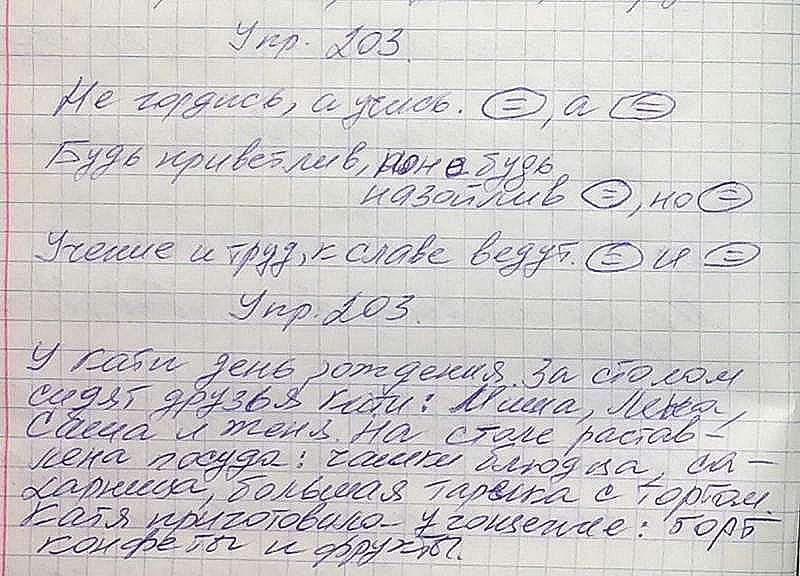 Упр. 203.
Не гордись, а учись. (=), а (=)
Будь приветлив, но не будь
назойлив (=), но (=)
Учение и труд, к славе ведут. (=) и (=)
Упр. 203.
У Кати день рождения. За столом
сидят друзья Кати: Миша, Лена,
Саша и Женя. На столе растав-
лена посуда: чашки блюдца, са-
харница, большая тарелка с тортом.
Катя приготовила угощение: торт
конфеты и фрукты.